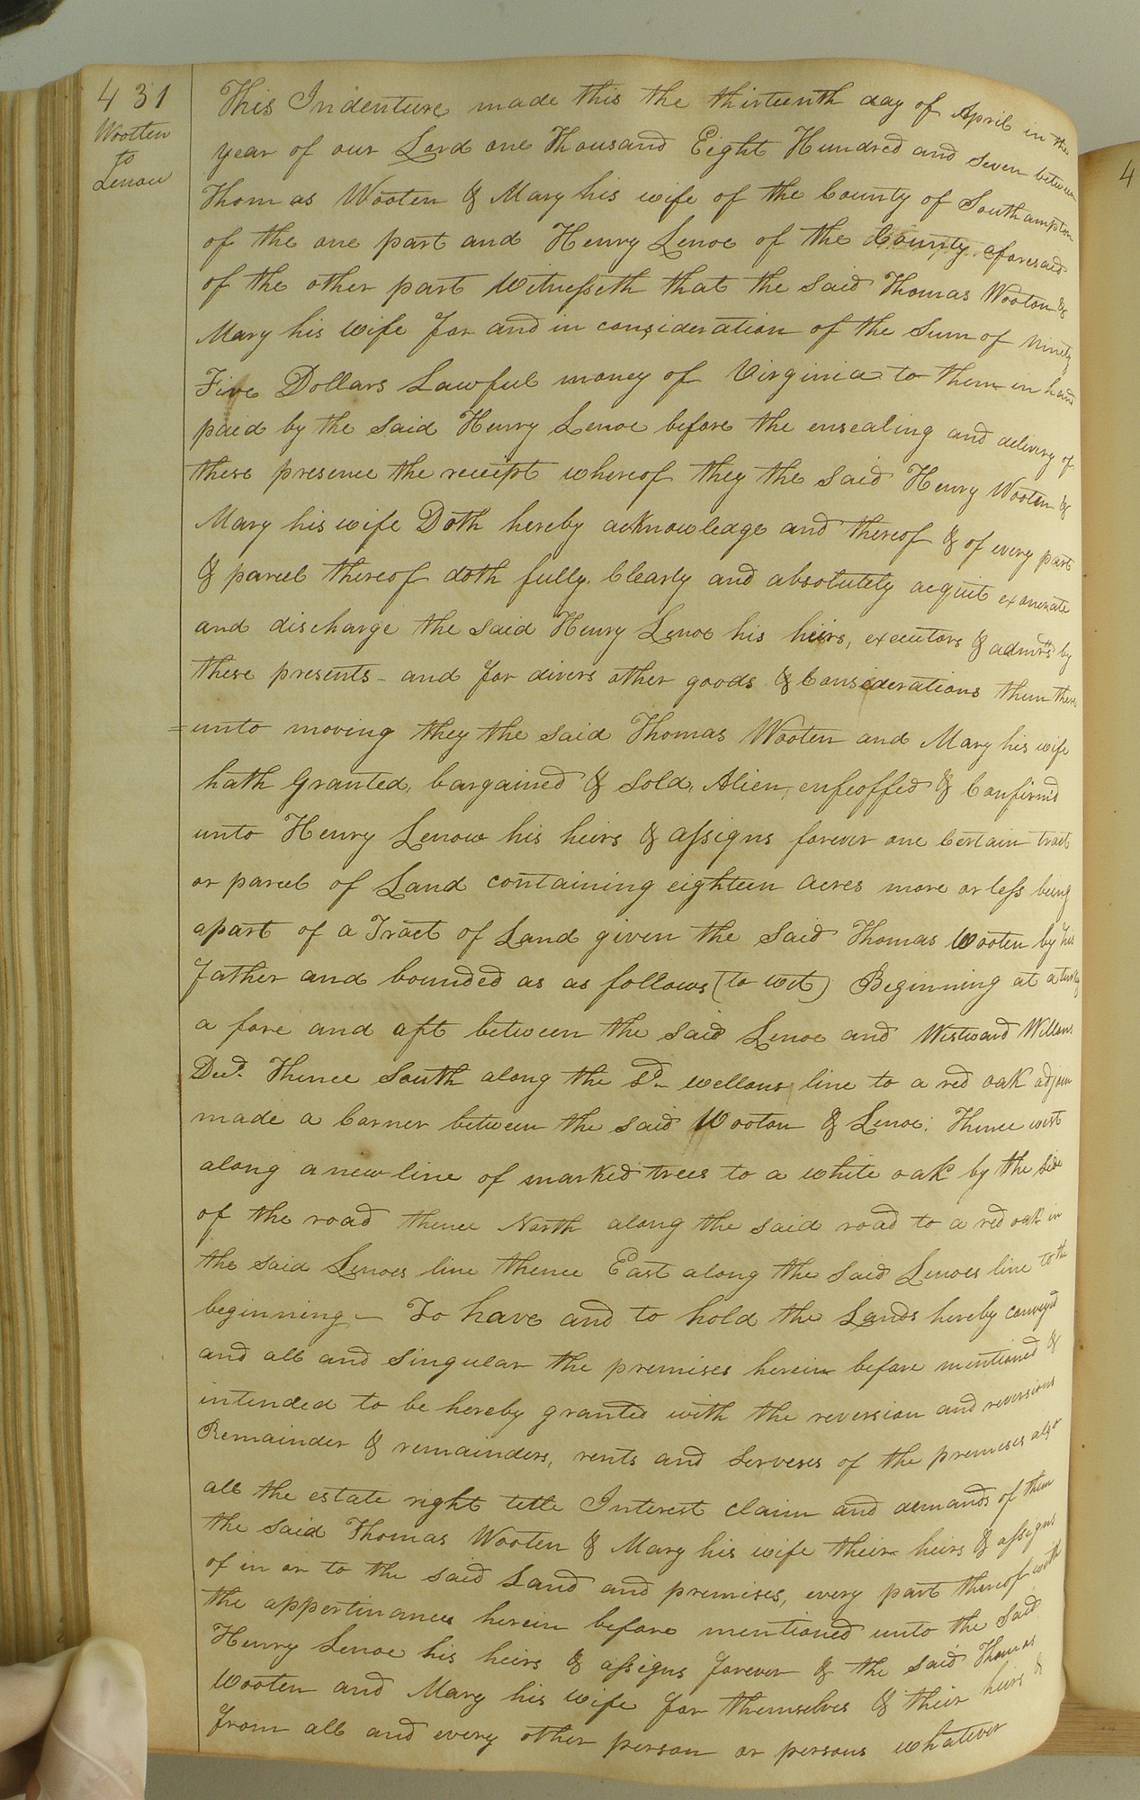 431
Wootten
to
Lenow
This Indenture made this the thirteenth day of April in the
year of our Lord one Thousand Eight Hundred and Seven between
Thomas Wooten & Mary his wife of the County of Southampton
of the one part and Henry Lenoe of the County aforesaid
of the other part Witnesseth that the said Thomas Wooton &
Mary his wife for and in consideration of the Sum of ninety
Five Dollars Lawful money of Virginia to them in hand
paid by the said Henry Lenoe before the ensealing and delivery of
these presence the receipt whereof they the said Henry Wooten &
Mary his wife Doth hereby acknowledge and thereof & of every part
& parcel thereof doth fully Clearly and absolutely acquit exonerate
and discharge the said Henry Lenoe his heirs, executors & admrs by
these presents - and for divers other goods & Considerations them there
=unto moving they the said Thomas Wooten and Mary his wife
hath Granted, bargained & Sold, Alien, enfeoffed & Confirmd
unto Henry Lenow his heirs & assigns forever one Certain tract
or parcel of Land containing eighteen acres more or less being
apart of a Tract of Land given the said Thomas Wooten by his
father and bounded as as follows (to wit) Beginning at a
a fore and aft between the said Lenoe and Westward Wellons
Decd. Thence South along the sd wellons line to a red oak
made a Corner between the said Wooton & Lenoe. Thence west
along a new line of marked trees to a white oak by the side
of the road thence North along the said road to a red oak in
the said Lenoes line thence East along the said Lenoes line to th
beginning — To have and to hold the Lands hereby conveyd
and all and Singular the premises herein before mentioned &
intended to be hereby granted with the reversion and reversions
Remainder & remainders, rents and Serveses of the premeses also
all the estate right tittle Interest claim and demands of them
the said Thomas Wooten & Mary his wife their heirs & assigns
of in or to the said Land and premises, every part thereof with
the appertinances herein before mentioned unto the Said
Henry Lenoe his heirs & assigns forever & the said Thomas
Wooten and Mary his wife for themselves & their heirs &
from all and every other person or persons whatever
4